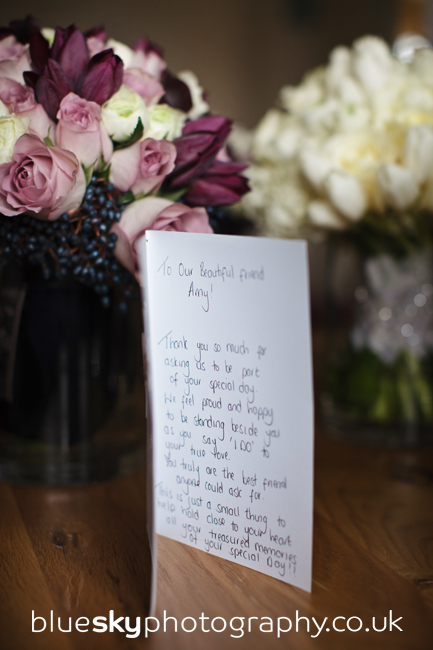 To Our Beautiful friend
Amy!
Thank you so much for
asking us to be part
of your special day.
We feel proud and happy
to be standing beside you
as you say 'I DO' to
your true love.
You truly are the best friend
anyone could ask for
This is just a small thing to
help hold close to your heart
all your treasured memories
of your special Day!!
blueskyphotography.co.uk